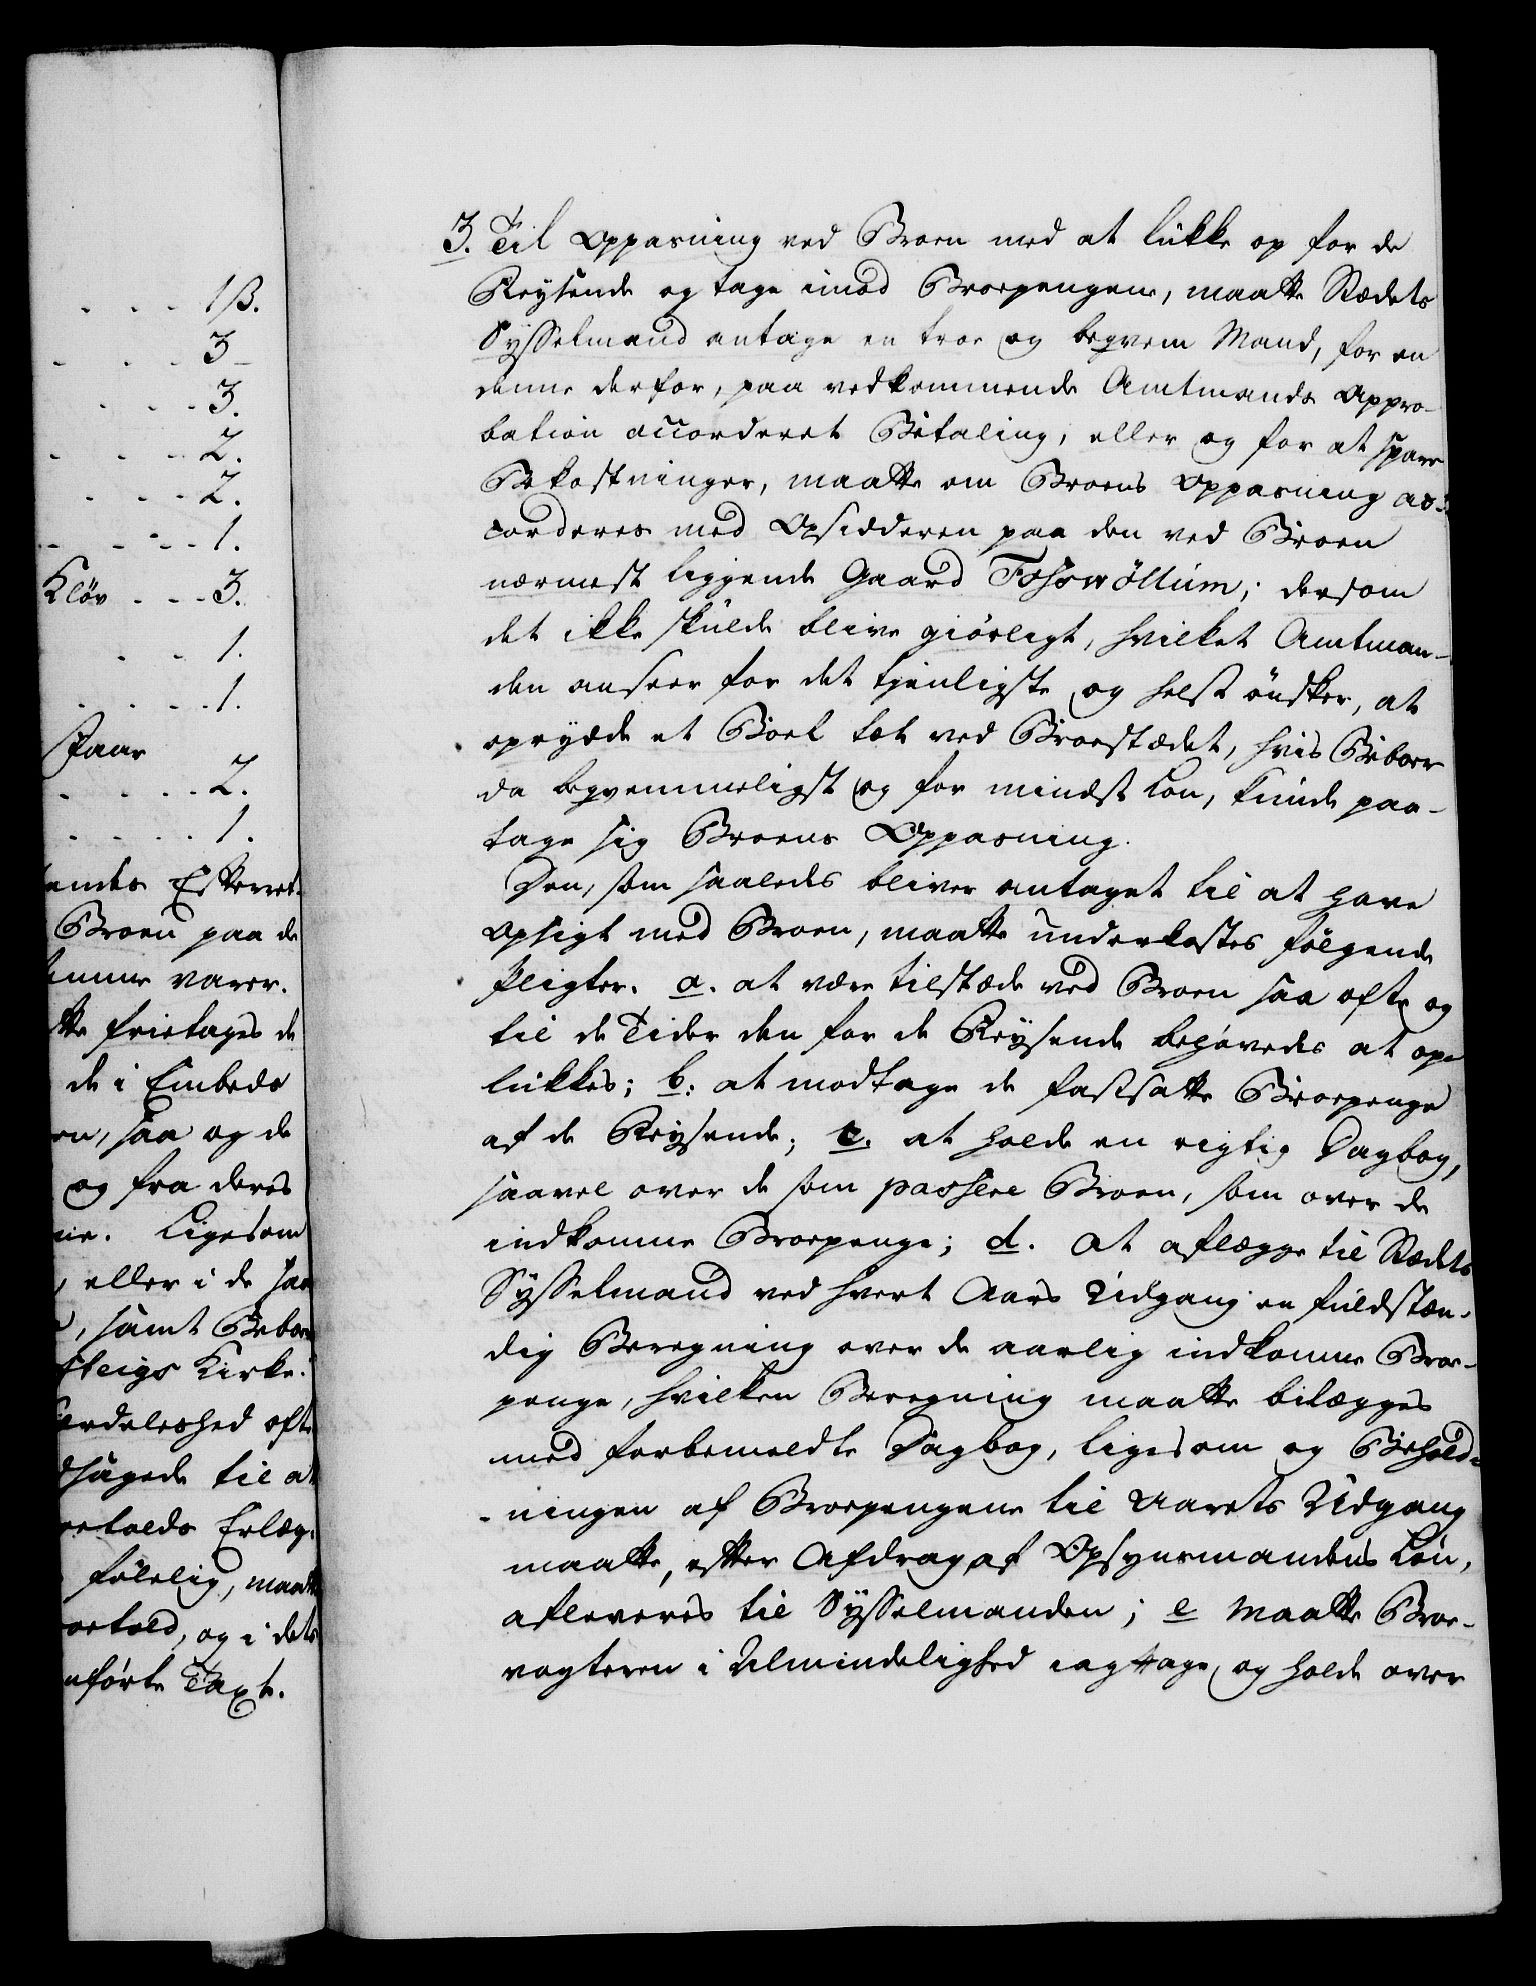 1ß.
3
3.
2.
2.
1.
Kløv - - - 3.
1.
1.
Faar
2.
1.
Broen paa de
varer.
fritages de
de i Embeds
saa og de
og fra deres
Ligesom
eller i de
samt
Kirke.
ofte
til at
følelig,
og i dets
Taxt.
3. Til Oppasning ved Broen med at lukke op for de
Reysende og tage imod Broepengene, maatte Stædets
Sysselmand antage en troe og beqvem Mand, for en
denne derfor, paa vedkommende Amtmands Appro-
bation accorderet Betaling, eller og for at spare
Bekostninger, maatte om Broens Oppasning ac-
corderes med Opsidderen paa den ved Broen
nærmest liggende Gaard Fossvöllum; dersom
det ikke skulde blive giørligt, hvilket Amtman-
den anseer for det tjenligste og helst ønsker, at
oprydde et Boel tæt ved Broestædet, hvis Beboer
da beqvemmeligst og for mindst Løn, kunde paa-
tage sig Broens Oppasning.
Den, som saaledes bliver antaget til at have
Opsigt med Broen, maatte underkastes følgende
Pligter. a. at være tilstæde ved Broen saa ofte og
til de Tider den for de Reysende behøvedes at op-
lukkes; b. at modtage de fastsatte Broepenge
af de Reysende; c. at holde en rigtig Dagbog,
saavel over de som passere Broen, som over de
indkomne Broepenge; d. at aflægge til Stædets
Sysselmand ved hvert Aars Udgang en fuldstæn-
dig Beregning over de aarlig indkomne Broe-
penge, hvilken Beregning maatte bilægges
med forbemeldte Dagbog, ligesom og Behold-
ningen af Broepengene til Aarets Udgang
maatte, efter Afdrag af Opsynsmandens Løn,
afleveres til Sysselmanden; e maatte Broe-
vogteren i Almindelighed iagttage og holde over